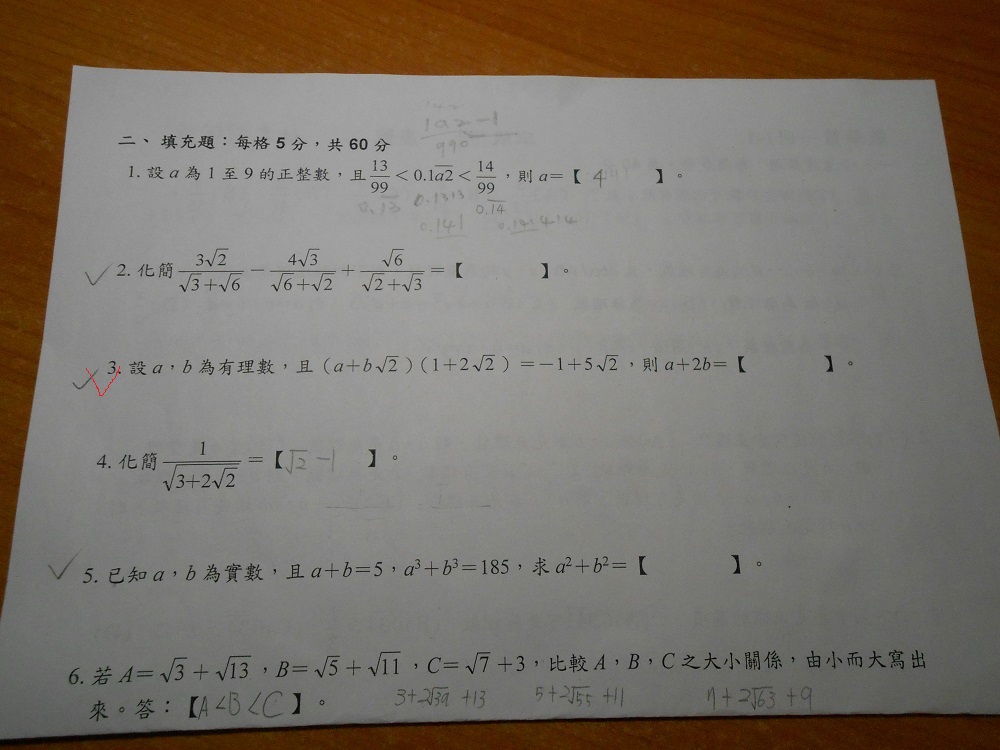 1a2-1
990
二、填充題：每格5分，共60分
1. 設 a 為 1 至 9 的正整數，且 13/99 < 0.1a̅2̅ < 14/99，則 a=【 4 】。
0.1̅3̅ 0.1313 0.1̅4̅
0.141 0.141414
2. 化簡 3√2/(√3+√6) − 4√3/(√6+√2) + √6/(√2+√3) =【 】。
3. 設 a，b 為有理數，且（a+b√2）(1+2√2）=−1+5√2，則 a+2b=【 】。
4. 化簡 1/√(3+2√2) =【√2 −1 】。
5. 已知 a，b 為實數，且 a+b=5，a³+b³=185，求 a²+b²=【 】。
6. 若 A=√3+√13，B=√5+√11，C=√7+3，比較 A，B，C 之大小關係，由小而大寫出
來。答：【A<B<C】。 3+2√39+13 5+2√55+11 7+2√63+9